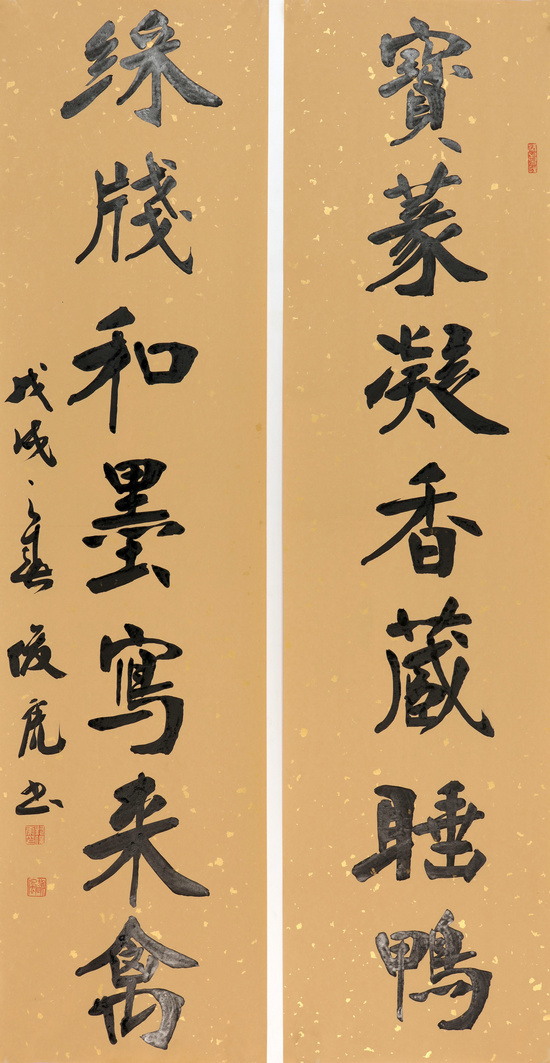 寶篆凝香藏睡鴨
綵牋和墨寫來禽
戊戌之春 书